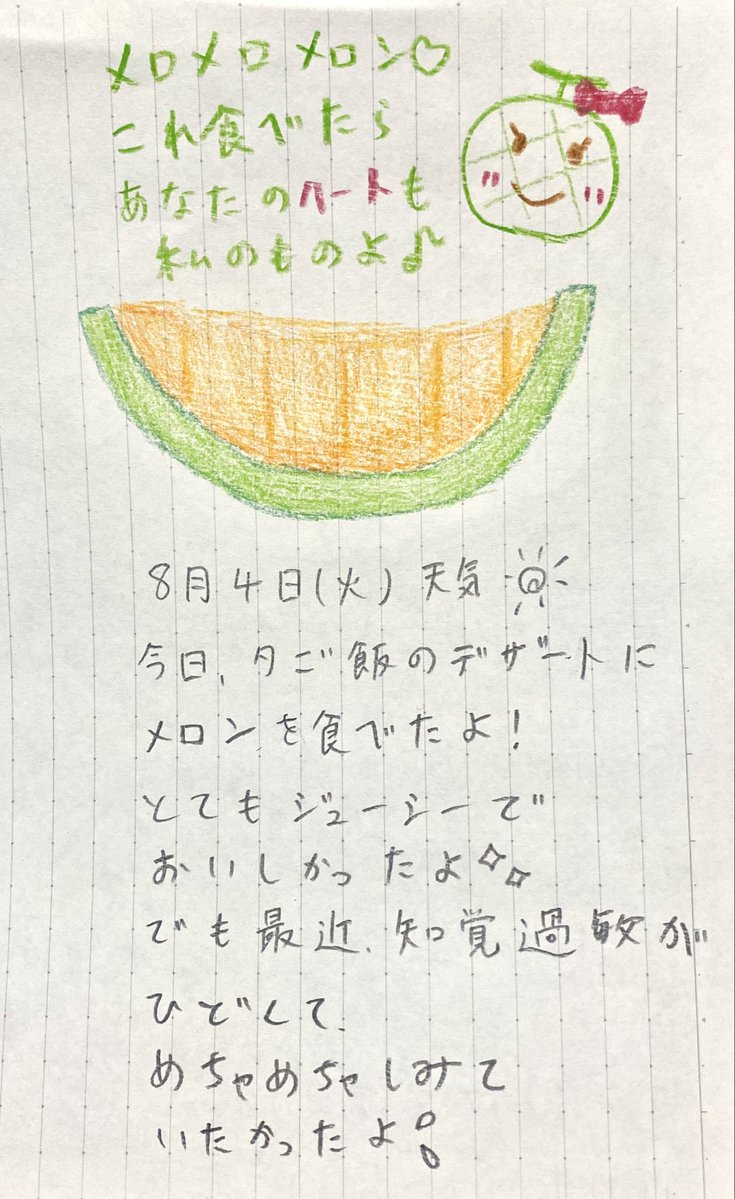 メロメロメロン♡
これ食べたら
あなたのハートも
私のものよ♪
8月4日(火) 天気☀
今日、夕ご飯のデザートに
メロンを食べたよ!
とてもジューシーで
おいしかったよ✧✧
でも最近、知覚過敏が
ひどくて、
めちゃめちゃしみて
いたかったよ